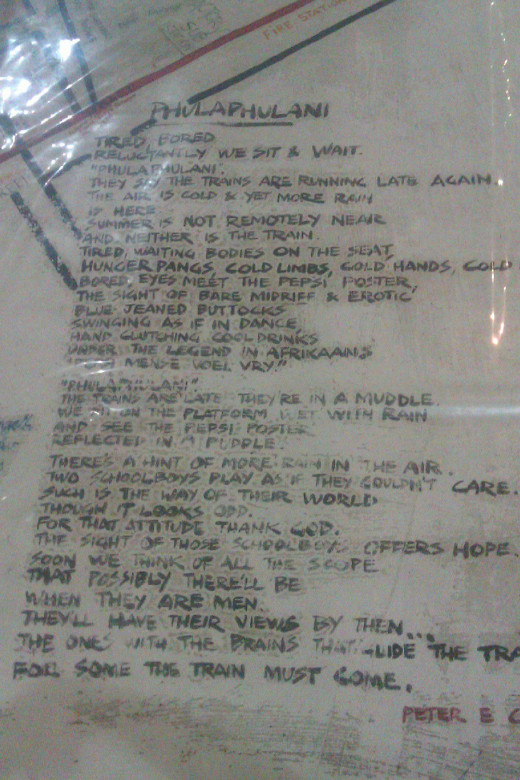 FIRE STATION
PHULAPHULANI
TIRED, BORED
RELUCTANTLY WE SIT & WAIT.
"PHULAPHULANI".
THEY SAY THE TRAINS ARE RUNNING LATE AGAIN.
THE AIR IS COLD & YET MORE RAIN
IS HERE
SUMMER IS NOT REMOTELY NEAR
AND NEITHER IS THE TRAIN.
TIRED, WAITING BODIES ON THE SEAT,
HUNGER PANGS, COLD LIMBS, COLD HANDS, COLD
BORED, EYES MEET THE PEPSI POSTER,
THE SIGHT OF BARE MIDRIFF & EROTIC,
BLUE JEANED BUTTOCKS
SWINGING AS IF IN DANCE,
HAND CLUTCHING COOLDRINKS
UNDER THE LEGEND IN AFRIKAANS
MENSE VOEL VRY."
"PHULAPHULANI"
THE TRAINS ARE LATE THEY'RE IN A MUDDLE.
WE SIT ON THE PLATFORM WET WITH RAIN
AND SEE THE PEPSI POSTER
REFLECTED IN A PUDDLE.
THERE'S A HINT OF MORE RAIN IN THE AIR.
TWO SCHOOLBOYS PLAY AS IF THEY COULDN'T CARE.
SUCH IS THE WAY OF THEIR WORLD
THOUGH IT LOOKS ODD.
FOR THAT ATTITUDE THANK GOD.
THE SIGHT OF THOSE SCHOOLBOYS OFFERS HOPE.
SOON WE THINK OF ALL THE SCOPE
THAT POSSIBLY THERE'LL BE
WHEN THEY ARE MEN.
THEY'LL HAVE THEIR VIEWS BY THEN...
THE ONES WITH THE BRAINS THAT GLIDE THE TRA
FOR SOME THE TRAIN MUST COME.
PETER E C